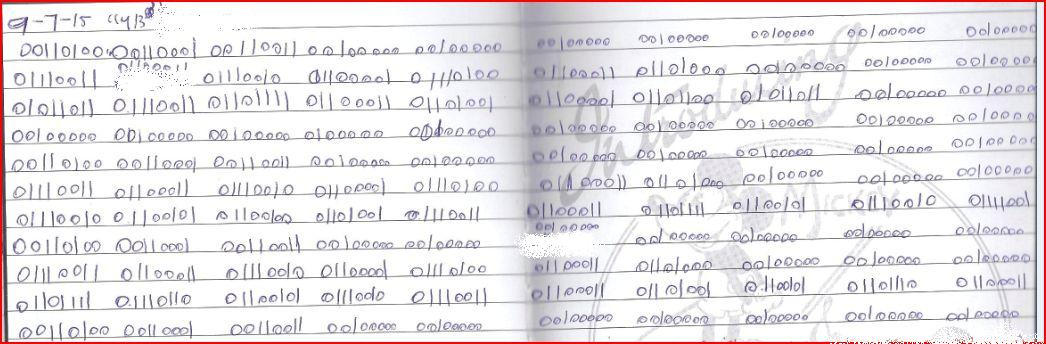 9-7-15 "413"
00110100 00110001 00110011 00100000 00100000 00100000 00100000 00100000 00100000 00100000
01110011 01100011 01110010 01100001 01110100 01100011 01101000 00100000 00100000 00100000
01011011 01110011 01101111 01100011 01101001 01100001 01101100 01011011 00100000 00100000
00100000 00100000 00100000 00100000 00100000 00100000 00100000 00100000 00100000 00100000
00110100 00110001 00110011 00100000 00100000 00100000 00100000 00100000 00100000 00100000
01110011 01100011 01110010 01100001 01110100 01100011 01101000 00100000 00100000 00100000
01110010 01100101 01100100 01101001 01110011 01100011 01101111 01100101 01110010 01111001
00110100 00110001 00110011 00100000 00100000 00100000 00100000 00100000 00100000 00100000
01110011 01100011 01110010 01100001 01110100 01100011 01101000 00100000 00100000 00100000
01101111 01110110 01100101 01110010 01110011 01100011 01101001 01100101 01101110 01100011
00110100 00110001 00110011 00100000 00100000 00100000 00100000 00100000 00100000 00100000
Introducing
Mickey